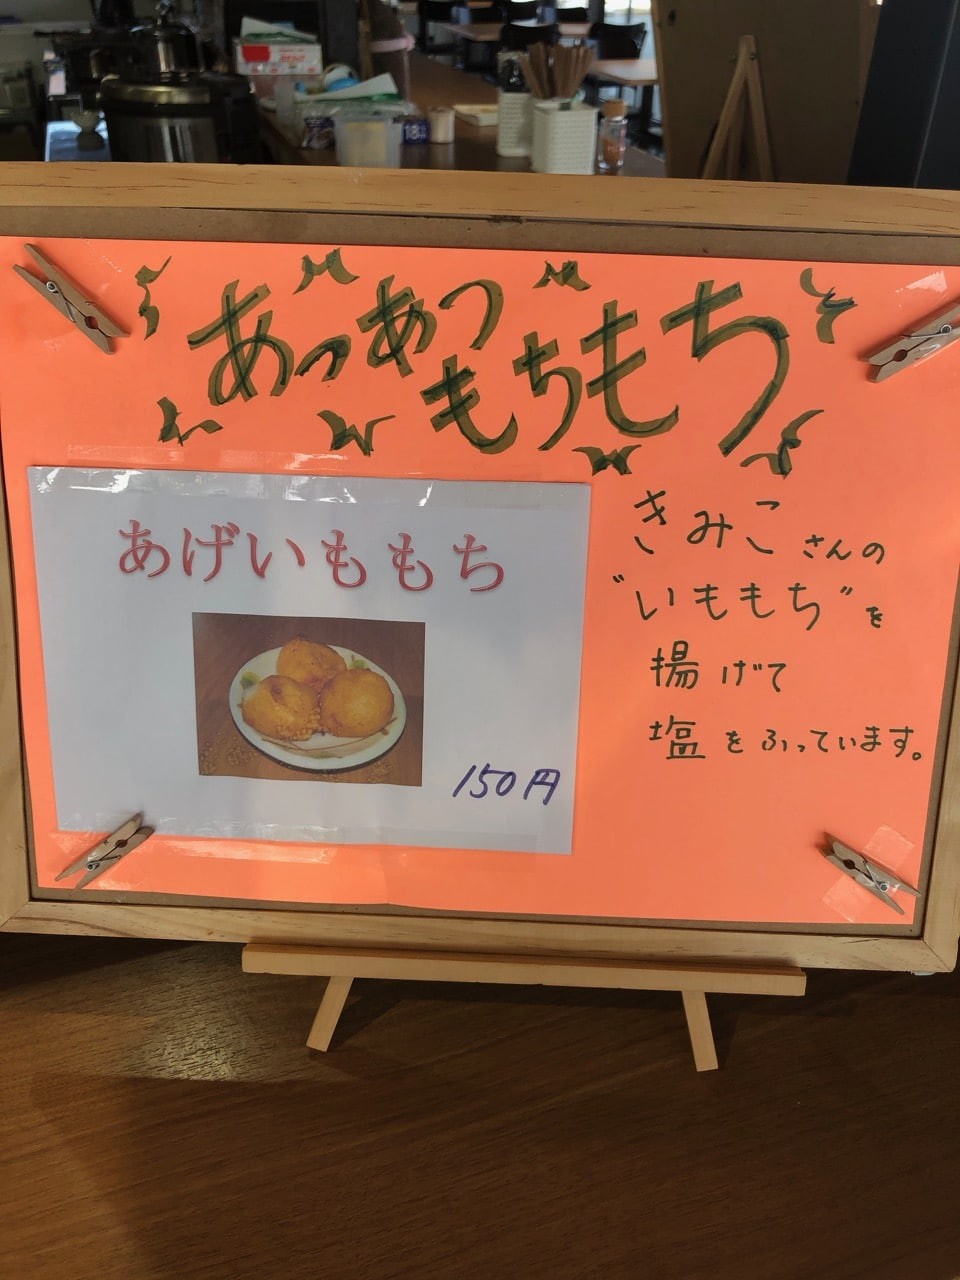 あつあつ
もちもち
あげいももち
150円
きみこさんの
"いももち"を
揚げて
塩をふっています。
18